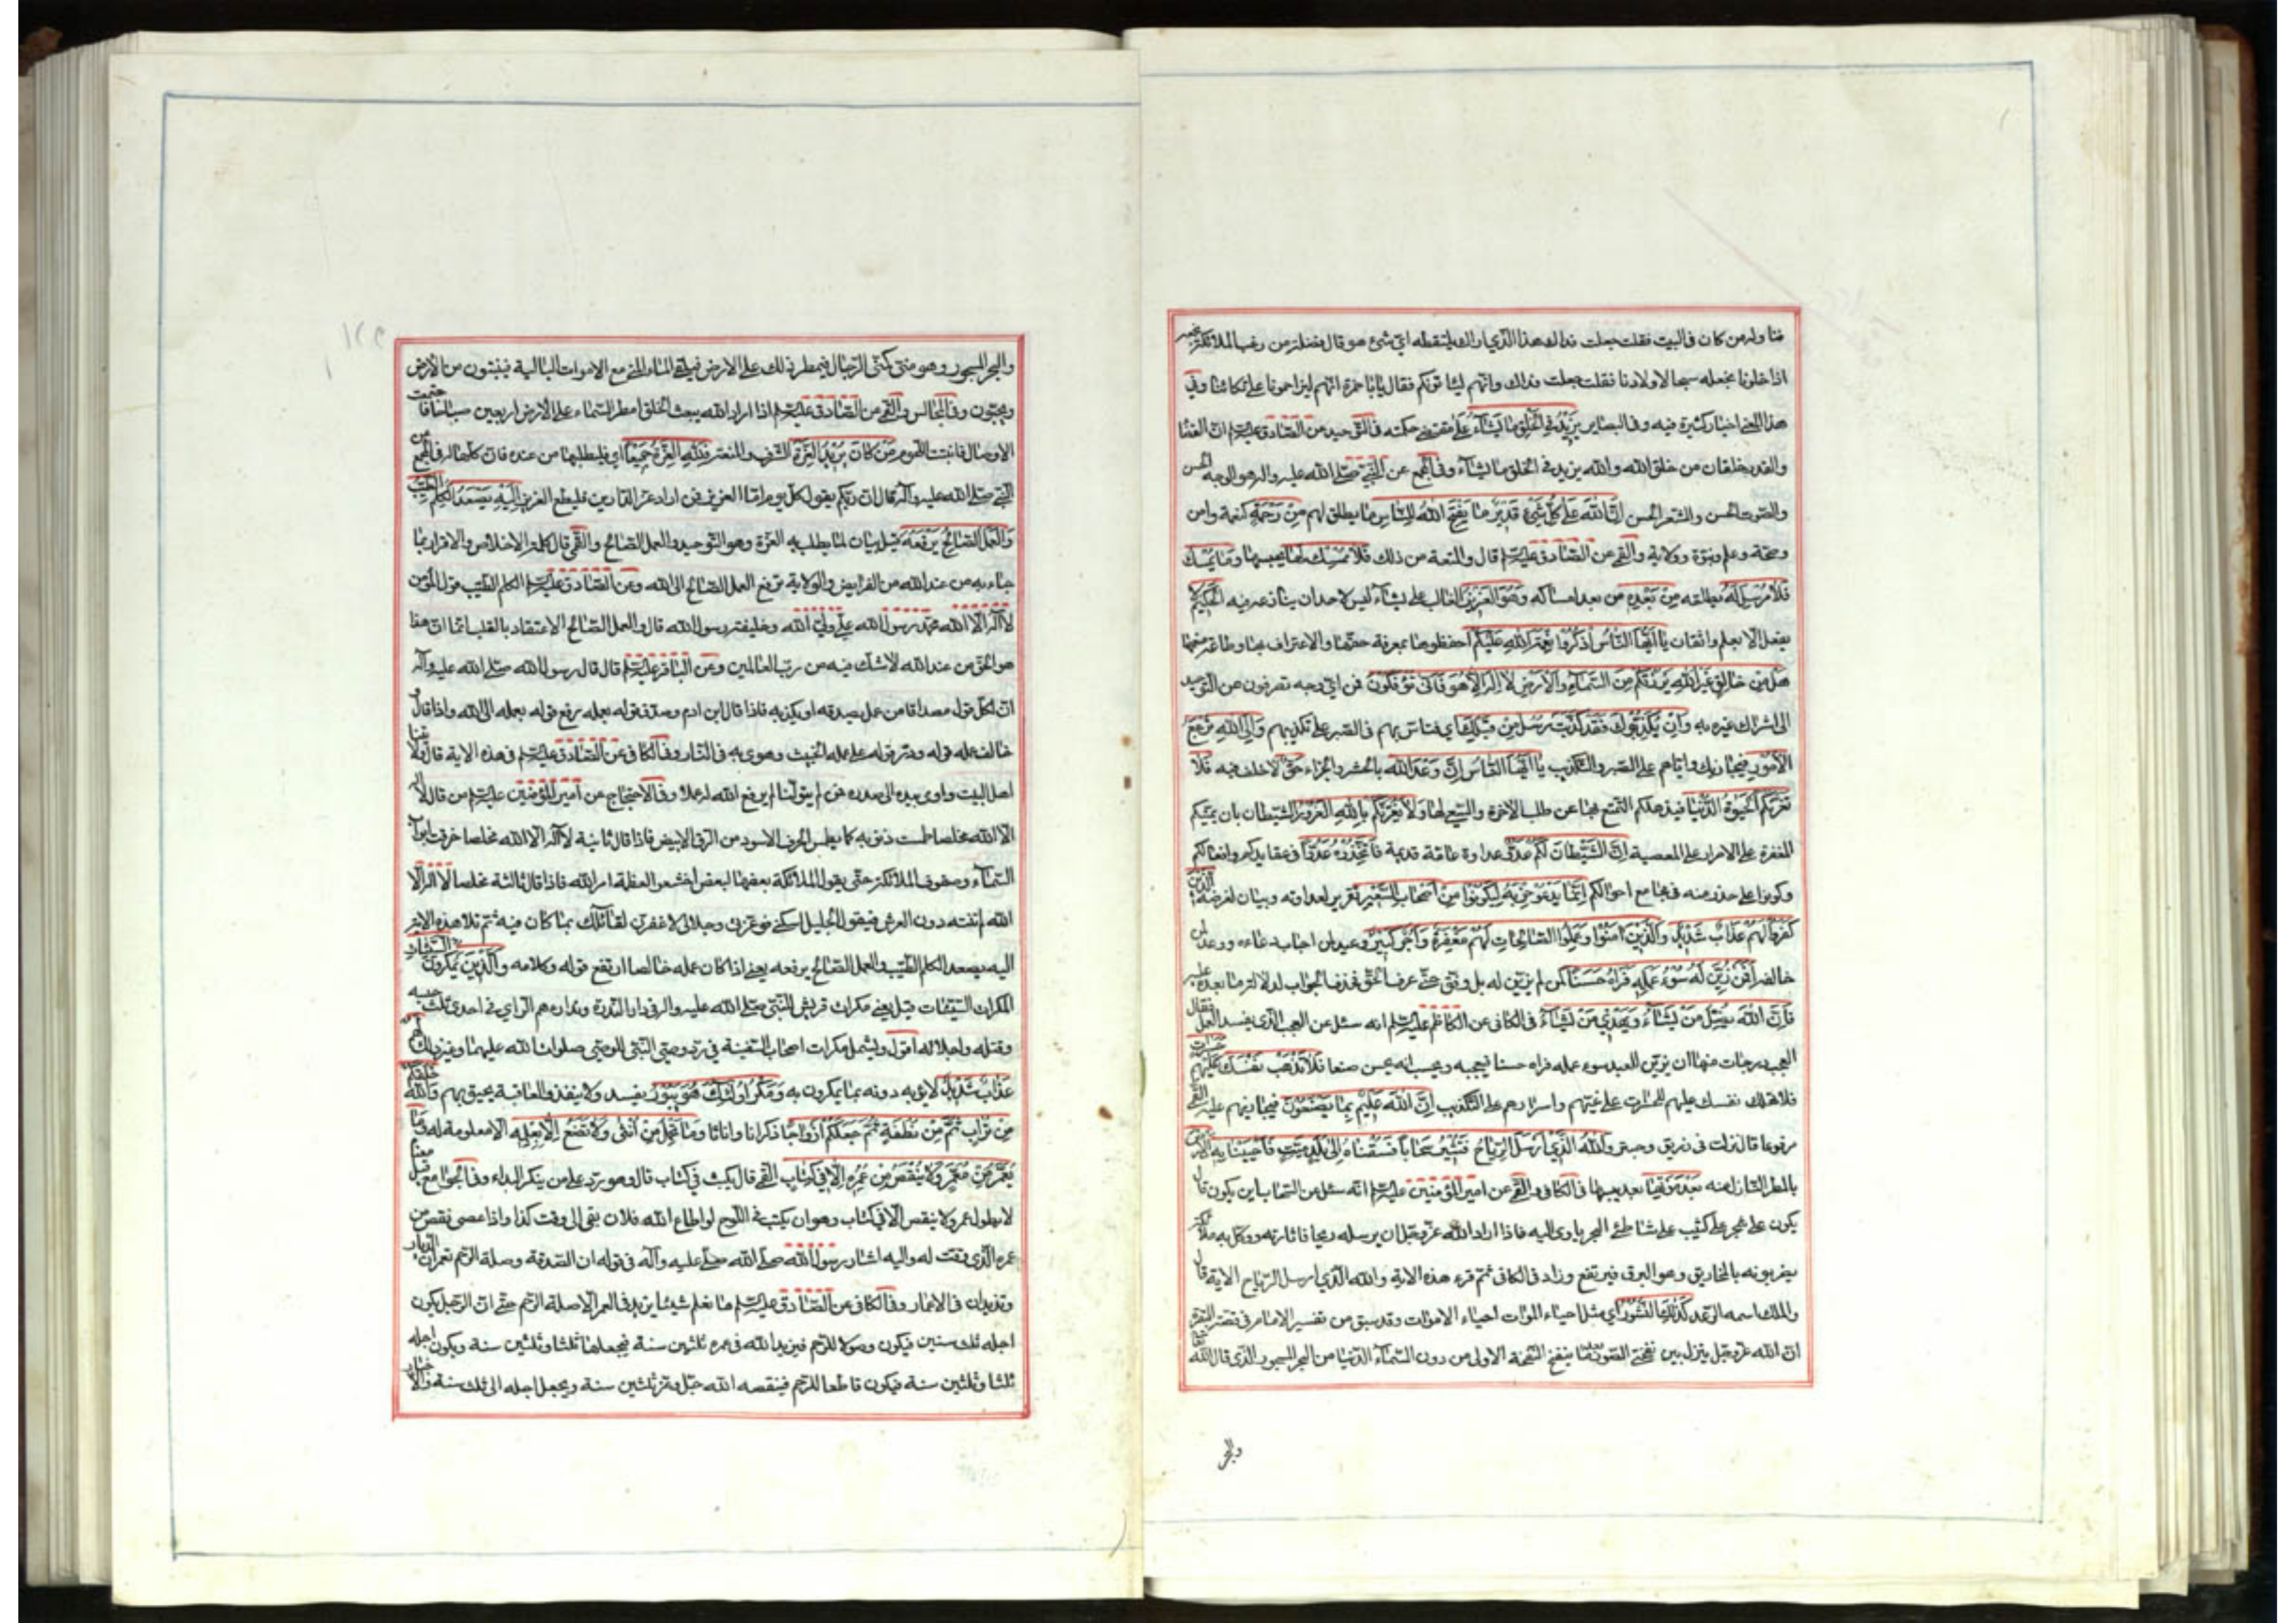 فناوله من كان في البيت فقلت جعلت فداك هذا الذي اراك يلتقطه اي شئ هو قال فضلة من زغب الملائكة نجمعه
اذا خلونا نجعله سبحا لاولادنا فقلت جعلت فداك وانهم ليأتونكم فقال يا با حمزة انهم ليزاحمونا على تكائنا وفي
هذا المعنى اخبار كثيرة فيه وفي البصاير يَزِيدُ فِي الْخَلْقِ مَا يَشَاءُ على مقتضى حكمته في التوحيد عن الصادق عليه السلم ان القضا
والقدر خلقان من خلق الله والله يزيد في الخلق ما يشاء وفي المجمع عن النبي صلى الله عليه واله هو الوجه الحسن
والصوت الحسن والشعر الحسن اِنَّ اللهَ عَلَى كُلِّ شَيْءٍ قَدِيرٌ مَا يَفْتَحِ اللهُ لِلنَّاسِ ما يطلق لهم مِنْ رَحْمَةٍ كنعمة وامن
وصحة وعلم ونبوة وولاية والقمي عن الصادق عليه السلم قال والمتعة من ذلك فَلَا مُمْسِكَ لَهَا يحبسها وَمَا يُمْسِكْ
فَلَا مُرْسِلَ لَهُ يطلقه مِنْ بَعْدِهِ من بعد امساكه وَهُوَ الْعَزِيزُ الغالب على ما يشاء ليس لاحد ان ينازعه فيه الْحَكِيمُ لا
يفعل الا بعلم واتقان يَا اَيُّهَا النَّاسُ اذْكُرُوا نِعْمَةَ اللهِ عَلَيْكُمْ احفظوها بمعرفة حقها والاعتراف بها وطاعة منعمها
هَلْ مِنْ خَالِقٍ غَيْرُ اللهِ يَرْزُقُكُمْ مِنَ السَّمَاءِ وَالْاَرْضِ لَا اِلَهَ اِلَّا هُوَ فَاَنَّى تُؤْفَكُونَ فمن اي وجه تصرفون من التوحيد
الى اشراك غيره به وَاِنْ يُكَذِّبُوكَ فَقَدْ كُذِّبَتْ رُسُلٌ مِنْ قَبْلِكَ اي فتأس بهم في الصبر على تكذيبهم وَاِلَى اللهِ تُرْجَعُ
الْاُمُورُ فيجازيك واياهم على الصبر والتكذيب يَا اَيُّهَا النَّاسُ اِنَّ وَعْدَ اللهِ بالحشر والجزاء حَقٌّ لا خلف فيه فَلَا
تَغُرَّنَّكُمُ الْحَيٰوةُ الدُّنْيَا فيذهلكم التمتع بها عن طلب الاخرة والسعي لها وَلَا يَغُرَّنَّكُمْ بِاللهِ الْغَرُورُ الشيطان بان يمنيكم
المغفرة على الاصرار على المعصية اِنَّ الشَّيْطَانَ لَكُمْ عَدُوٌّ عداوة عامة قديمة فَاتَّخِذُوهُ عَدُوًّا في عقايدكم وافعالكم
وكونوا على حذر منه في مجامع احوالكم اِنَّمَا يَدْعُو حِزْبَهُ لِيَكُونُوا مِنْ اَصْحَابِ السَّعِيرِ تقرير لعداوته وبيان لغرضه اَلَّذِينَ
كَفَرُوا لَهُمْ عَذَابٌ شَدِيدٌ وَالَّذِينَ اٰمَنُوا وَعَمِلُوا الصَّالِحَاتِ لَهُمْ مَغْفِرَةٌ وَاَجْرٌ كَبِيرٌ وعيد لمن اجاب دعاءه ووعد لمن
خالفه اَفَمَنْ زُيِّنَ لَهُ سُوءُ عَمَلِهِ فَرَاٰهُ حَسَنًا كمن لم يزين له بل وفق حتى عرف الحق فحذف الجواب لدلالة ما بعده عليه
فَاِنَّ اللهَ يُضِلُّ مَنْ يَشَاءُ وَيَهْدِي مَنْ يَشَاءُ في الكافي عن الكاظم عليه السلم انه سئل عن العجب الذي يفسد العمل فقال
العجب درجات منها ان يزين للعبد سوء عمله فراه حسنا فيعجبه ويحسب انه يحسن صنعا فَلَا تَذْهَبْ نَفْسُكَ عَلَيْهِمْ حَسَرَاتٍ
فلا تهلك نفسك عليهم للحسرات على غيهم واصرارهم على التكذيب اِنَّ اللهَ عَلِيمٌ بِمَا يَصْنَعُونَ فيجازيهم عليه القمي
مرفوعا قال نزلت في زريق وحبتر وَاللهُ الَّذِي اَرْسَلَ الرِّيَاحَ فَتُثِيرُ سَحَابًا فَسُقْنَاهُ اِلَى بَلَدٍ مَيِّتٍ فَاَحْيَيْنَا بِهِ الْاَرْضَ
بالمطر النازل منه بَعْدَ مَوْتِهَا بعد يبسها في الكافي والقمي عن امير المؤمنين عليه السلم انه سئل عن السحاب اين يكون قال
يكون على شجر على كثيب على شاطئ البحر ياوي اليه فاذا اراد الله عز وجل ان يرسله ريحا فاثارته ووكل به ملائكة
يضربونه بالمخاريق وهو البرق فيرتفع وزاد في الكافي ثم قرء هذه الاية والله الذي ارسل الرياح الاية قال
والملك اسمه الرعد كَذٰلِكَ النُّشُورُ اي مثل احياء الموات احياء الاموات وقد سبق من تفسير الامام في قصة البقرة
ان الله عز وجل ينزل بين نفختي الصور بعد ما ينفخ النفخة الاولى من دون السماء الدنيا من البحر المسجور الذي قال الله تعالى
والبحر
والبحر المسجور وهو مني كمني الرجال فيمطر ذلك على الارض فيلقى الماء المني مع الاموات البالية فينبتون من الارض
ويحيون وفي المجالس والقمي عن الصادق عليه السلم اذا اراد الله يبعث الخلق امطر السماء على الارض اربعين صباحا فاجتمعت
الاوصال فانبتت اللحوم مَنْ كَانَ يُرِيدُ الْعِزَّةَ الشرف والمنعة فَلِلّٰهِ الْعِزَّةُ جَمِيعًا اي فليطلبها من عنده فان كلها له في المجمع عن
النبي صلى الله عليه واله قال ان ربكم يقول كل يوم انا العزيز فمن اراد عز الدارين فليطع العزيز اِلَيْهِ يَصْعَدُ الْكَلِمُ الطَّيِّبُ
وَالْعَمَلُ الصَّالِحُ يَرْفَعُهُ قيل بيان لما يطلب به العزة وهو التوحيد والعمل الصالح والقمي قال كلمة الاخلاص والاقرار بما
جاء به من عند الله من الفرايض والولاية ترفع العمل الصالح الى الله وعن الصادق عليه السلم الكلم الطيب قول المؤمن
لا اله الا الله محمد رسول الله علي ولي الله وخليفة رسول الله قال والعمل الصالح الاعتقاد بالقلب انما ان هذا
هو الحق من عند الله لا شك فيه من رب العالمين وعن الباقر عليه السلم قال قال رسول الله صلى الله عليه وآله
ان لكل قول مصداقا من عمل يصدقه او يكذبه فاذا قال ابن ادم وصدق قوله بعمله رفع قوله بعمله الى الله واذا قال و
خالف عمله قوله ورد قوله على عمله الخبيث وهوى به في النار وفي الكافي عن الصادق عليه السلم في هذه الاية قال ولايتنا
اهل البيت واومى بيده الى صدره فمن لم يتولنا لم يرفع الله له عملا وفي الاحتجاج عن امير المؤمنين عليه السلم من قال لا اله
الا الله مخلصا طمست ذنوبه كما يطمس الحرف الاسود من الرق الابيض فاذا قال ثانية لا اله الا الله مخلصا خرقت ابواب
السماء وصفوف الملائكة حتى يقول الملائكة بعضها لبعض اخشعوا لعظمة امر الله فاذا قال ثالثة مخلصا لا اله الا
الله لم تنته دون العرش فيقول الجليل اسكني فوعزتي وجلالي لاغفرن لقائلك بما كان فيه ثم تلا هذه الاية
اليه يصعد الكلم الطيب والعمل الصالح يرفعه يعني اذا كان عمله خالصا ارتفع قوله وكلامه وَالَّذِينَ يَمْكُرُونَ السَّيِّئَاتِ
المكرات السيئات قيل يعني مكرات قريش للنبي صلى الله عليه واله في دار الندوة وتداورهم الراي في احدى ثلث حبسه
وقتله واجلائه اقول ويشمل مكرات اصحاب السقيفة في رد وصي النبي الوصي صلوات الله عليهما وغير ذلك لَهُمْ
عَذَابٌ شَدِيدٌ لا يؤبه دونه بما يمكرون به وَمَكْرُ اُولٰئِكَ هُوَ يَبُورُ يفسد ولا ينفذ والعاقبة يحيق بهم وَاللهُ خَلَقَكُمْ
مِنْ تُرَابٍ ثُمَّ مِنْ نُطْفَةٍ ثُمَّ جَعَلَكُمْ اَزْوَاجًا ذكرانا واناثا وَمَا تَحْمِلُ مِنْ اُنْثَى وَلَا تَضَعُ اِلَّا بِعِلْمِهِ الا معلومة له وَمَا
يُعَمَّرُ مِنْ مُعَمَّرٍ وَلَا يُنْقَصُ مِنْ عُمُرِهِ اِلَّا فِي كِتَابٍ القمي قال يكتب في كتاب قال وهو رد على من ينكر البداء وفي الجوامع قيل معناه
لا يطول عمر ولا ينقص الا في كتاب وهو ان يكتب في اللوح لو اطاع الله فلان بقي الى وقت كذا واذا عصى نقص من
عمره الذي وقت له واليه اشار رسول الله صلى الله عليه وآله في قوله ان الصدقة وصلة الرحم تعمران الديار
وتزيدان في الاعمار وفي الكافي عن الصادق عليه السلم ما نعلم شيئا يزيد في العمر الا صلة الرحم حتى ان الرجل يكون
اجله ثلث سنين فيكون وصولا للرحم فيزيد الله في عمره ثلثين سنة فيجعلها ثلثا وثلثين سنة ويكون اجله
ثلثا وثلثين سنة فيكون قاطعا للرحم فينقصه الله جل وعز ثلثين سنة ويجعل اجله الى ثلث سنة والاخبار